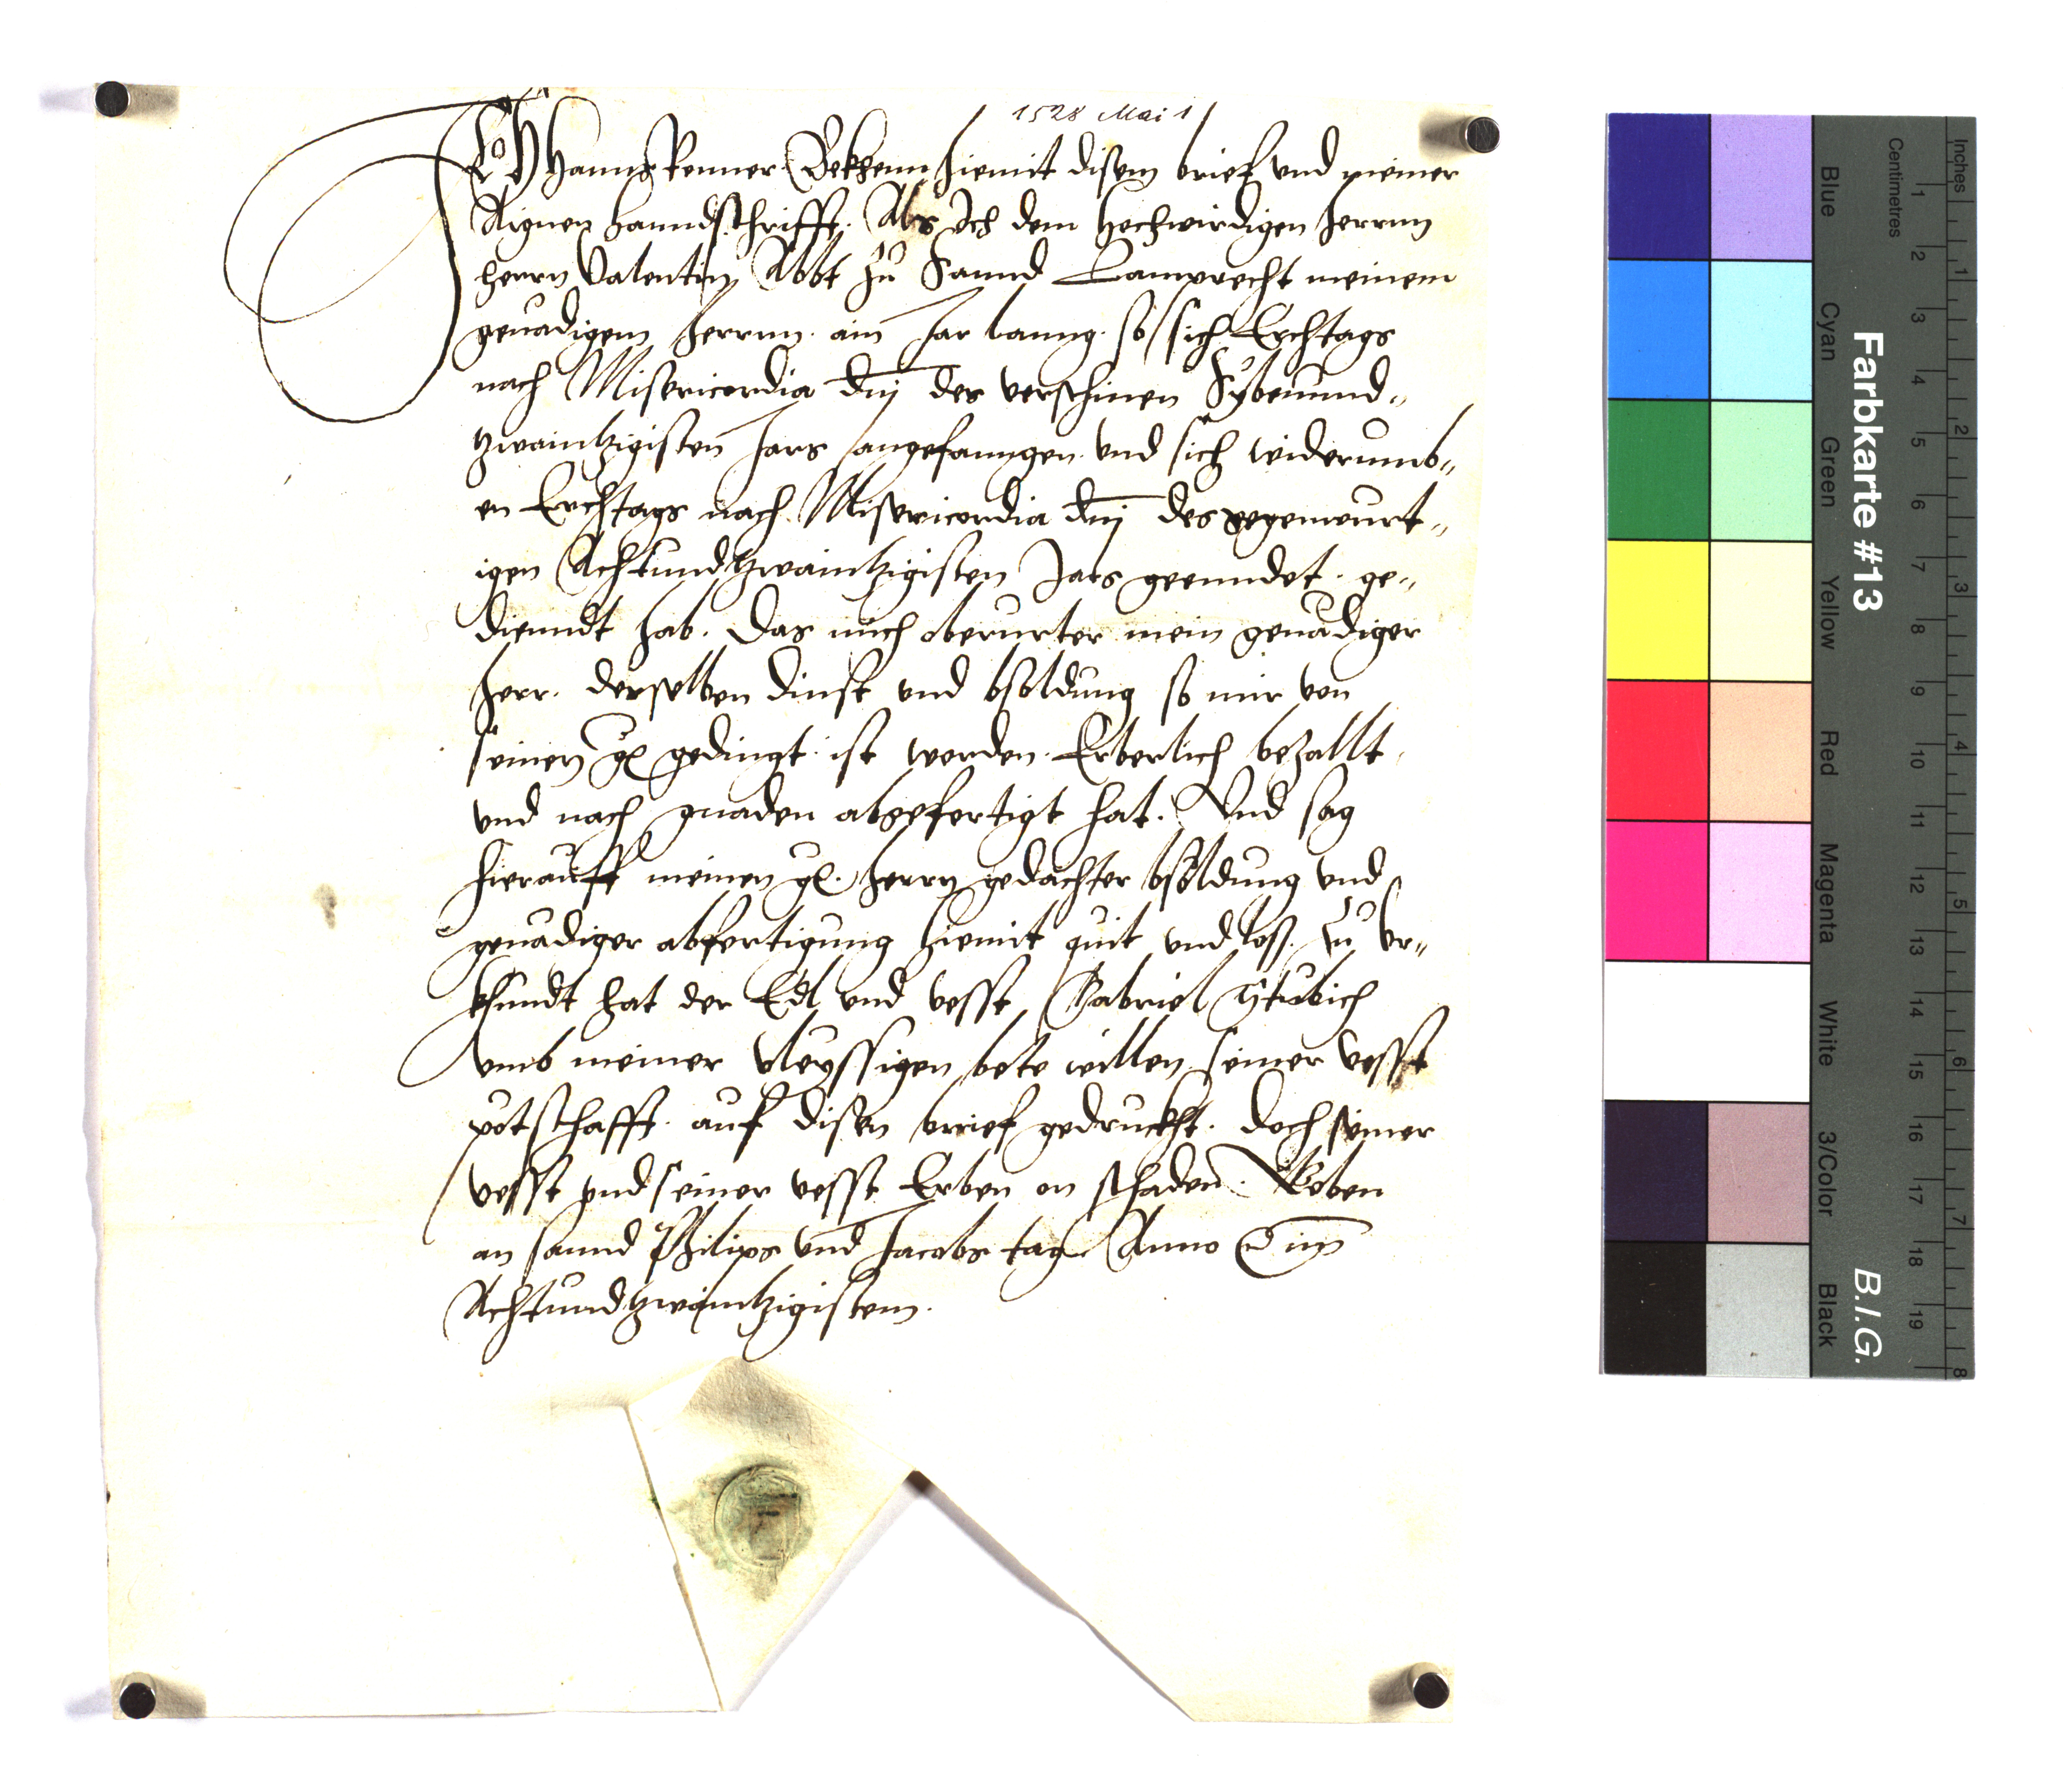 1528 Mai 1
ICH Hanns Renner Bekhenn hiemit disem brief und meiner
Aignen hanndschrifft. Als Ich dem hochwirdigen herrnn
herrn Valentin Abbt zu Sannd Lamprecht meinem
genadigem herrnn. ain Jar lanng. so sich Erchtags
nach Misericordia dnj des verschinen Sybenund„
tzwaintzigisten Jars angefanngen und sich widerumb„
en Erchtags nach Misericordia dnj des gegenwurt„
igen Achtundtzwaintzigisten Jars geenndet. ge„
dienndt hab. Das mich oberurter mein genadiger
herr. derselben dinst und bsoldung so mir von
seinen gl gedingt ist worden. Erberlich bezallt
und nach gnaden abgefertigt hat. Und sag
hierauff meinen gl. herrn gedachter bsoldung und
genadiger abfertigung hiemit quit und loß. Zu Ur„
khundt hat der Edl und vesst Gabriel
umb meiner vleyssigen bete willen seiner vesst
potschafft. auf disen brief gedruckht. doch seiner
vesst und seiner vesst Erben on schaden. Geben
an sannd Philips und Jacobs tag. Anno im
Achtundtzwaintzigistem.
Farbkarte #13
B.I.G.
Inches
1 2 3 4 5 6 7 8
Centimetres
1 2 3 4 5 6 7 8 9 10 11 12 13 14 15 16 17 18 19
Blue
Cyan
Green
Yellow
Red
Magenta
White
3/Color
Black